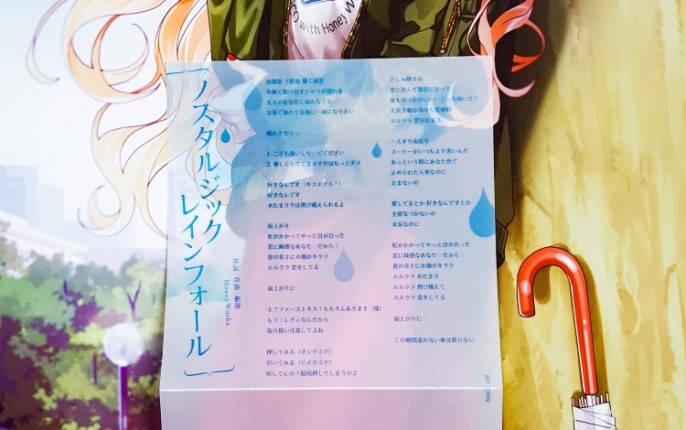 S with Honey W
ノスタルジック
レインフォール
作詞 作曲 編曲
HoneyWorks
放課後 下駄箱 響く雨音
傘無く駆け出すシャツが濡れる
大人のあなたに届かなくて
頬寄せて…
1. こども扱いしないでください
2. 優しくしてごまかすのはもっとダメ
好きなんです(キコエナイ?)
好きなんです
水たまり今は飛び越えられるよ
雨上がり
虹がかかってやっと目が合った
恋に鈍感なあなた…だから!
夏の青さに水滴がキラリ
ルルララ 恋をしてる
雨上がりに…
え?ファーストキス?もちろんあります(嘘)
もう!レディなんだから
取り扱い注意してよね
押してみる(オシテミテ)
引いてみる(ヒイテミテ)
何してんの?結局押してしまうのよ
どしゃ降りの
空に住んで
誰も気づかないの…こっち向いて!
天気予報は雨のち
ルルララ 恋が
一人きり雨宿り
コーヒーがいつもより苦いんだ
あっという間にあなた色で
止められたら楽なのに
止まないの
愛してるとか 好きなんですとか
全部気づかないの
本気なのに
虹がかかってやっと目が合った
恋に鈍感なあなた…だから!
夏の青さに水滴がキラリ
ルルララ 水たまり
ルルララ 飛び越えて
ルルララ 恋をしてる
雨上がりに…
この瞬間迷わない傘は要らない